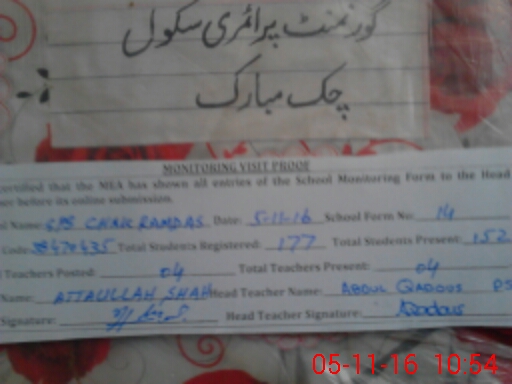 گورنمنٹ پرائمری سکول
چک مبارک
MONITORING VISIT PROOF
certified that the MEA has shown all entries of the School Monitoring Form to the Head
before its online submission.
Name: GPS CHAK RAMDAS Date: 5-11-16 School Form No: 14
Code: 38470435 Total Students Registered: 177 Total Students Present: 152
Teachers Posted: 04 Total Teachers Present: 04
Name: ATTAULLAH SHAH Head Teacher Name: ABDUL QADOUS
Signature: Head Teacher Signature: Qadous
05-11-16 10:54